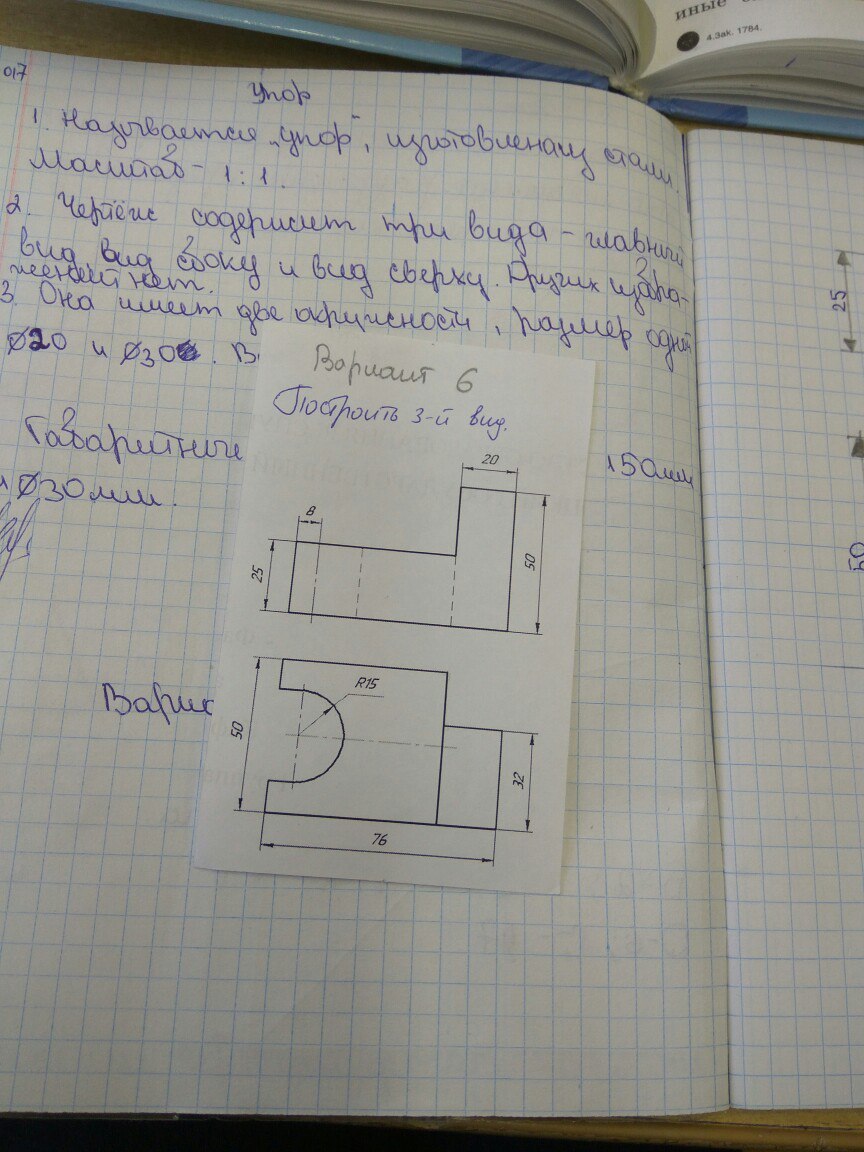 иные
4.Зак. 1784.
017
Упор
1. Называется „упор", изготовленаиз стали.
Масштаб - 1:1.
2. Чертёж содержит три вида - главный
вид, вид сбоку и вид сверху. Других изобра-
жений нет.
3. Она имеет две окружности, размер одной
Ø20 и Ø30. В
Габаритные
150мм
Ø30мм.
Вариа
Вариант 6
Построить 3-й вид.
20
8
25
50
R15
50
32
76
25
50